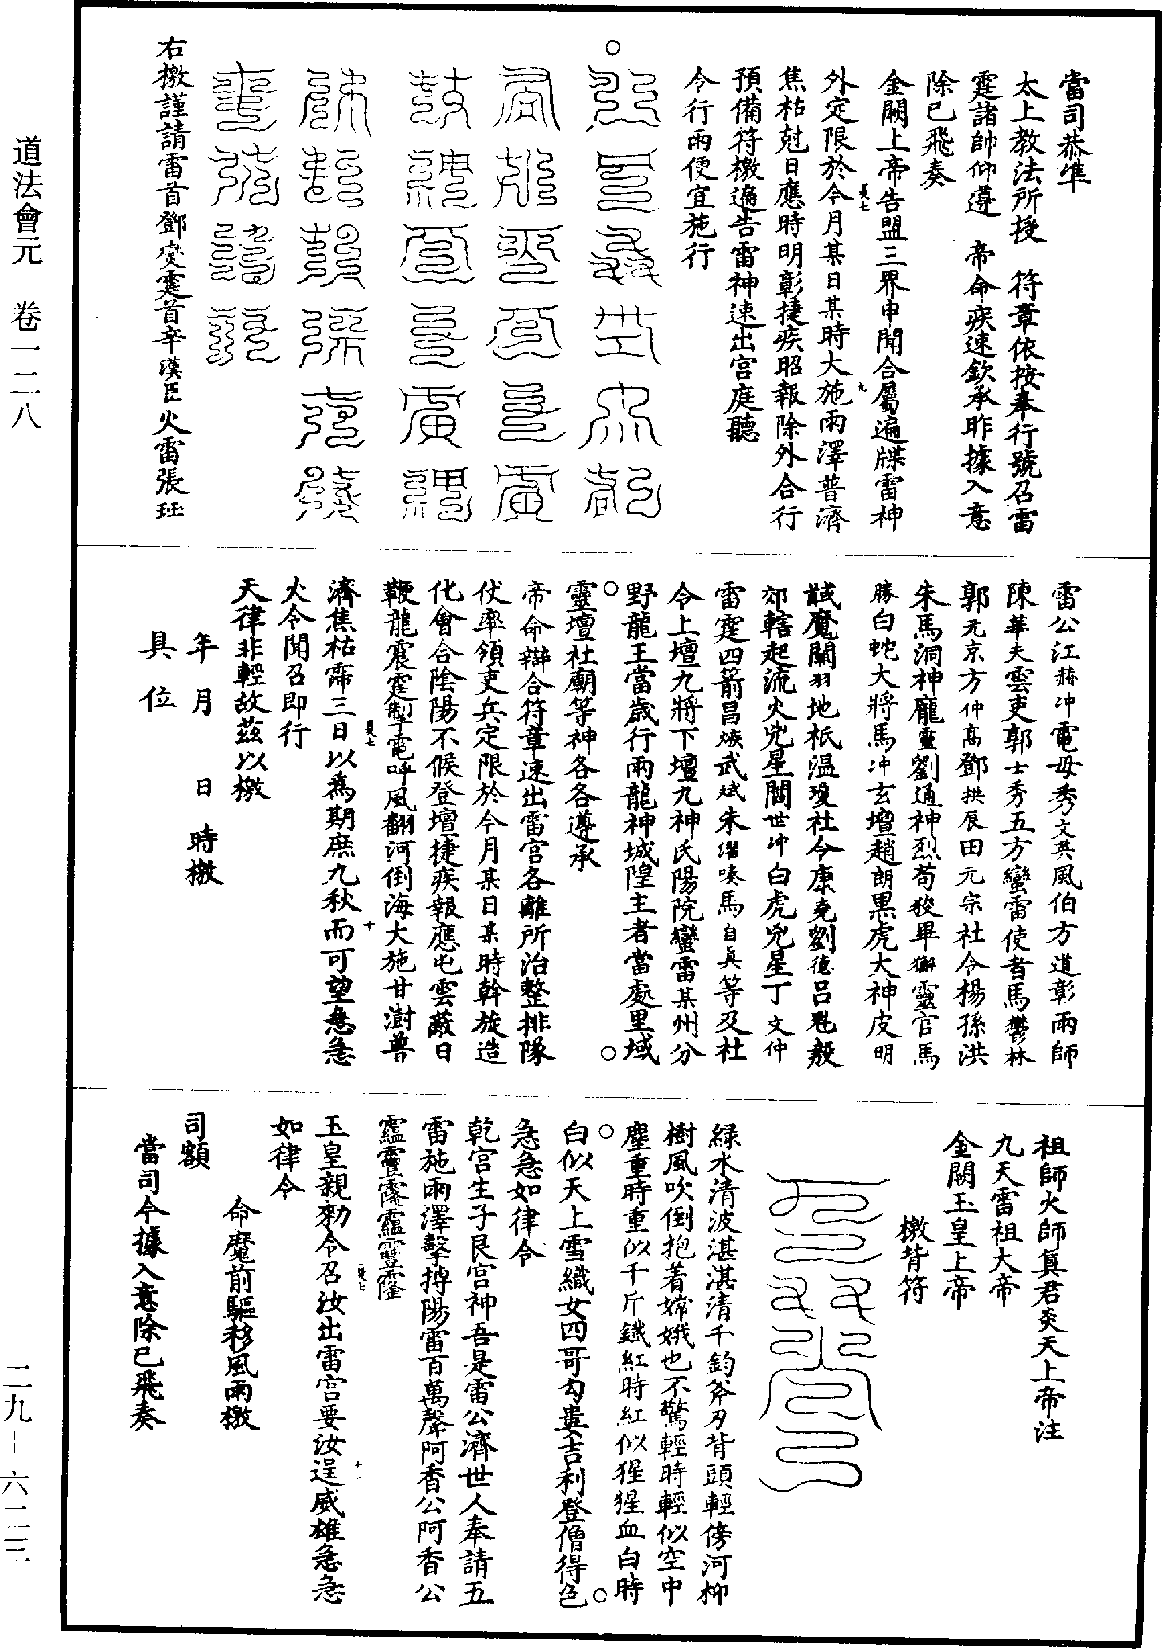 道法會元　卷一二八
二九－六二三
當司恭準
太上教法所授　符章依按奉行號召雷
霆諸帥仰遵　帝命疾速欽承昨據入意
除已飛奏
金闕上帝告盟三界申聞合屬遍牒雷神
外定限於今月某日某時大施雨澤普濟
焦枯尅日應時明彰捷疾昭報除外合行
預備符檄遍告雷神速出宮庭聽
令行雨便宜施行
右檄謹請雷首鄧燮霆首辛漢臣火雷張珏
雷公江赫冲電母秀文英風伯方道彰雨師
陳華夫雲吏郭士秀五方蠻雷使者馬鬱林
郭元京方仲高鄧拱辰田元宗社令楊孫洪
朱馬洞神龐靈劉通神烈苟狻畢獬靈官馬
勝白蛇大將馬冲玄壇趙朗黑虎大神皮明
馘魔關羽地祇溫瓊社令康堯劉德呂魁殷
郊轄起流火兇星閻世冲白虎兇星丁文仲
雷霆四箭昌燧武斌朱縉嗪馬自真等及社
令上壇九將下壇九神氏陽院蠻雷某州分
野龍王當歲行雨龍神城隍主者當處里域
靈壇社廟等神各各遵承
帝命辯合符章速出雷宮各離所治整排隊
仗率領吏兵定限於今月某日某時幹旋造
化會合陰陽不候登壇捷疾報應屯雲蔽日
鞭龍震霆掣電呼風翻河倒海大施甘澍普
濟焦枯霈三日以為期庶九秋而可望急急
火令聞召即行
天律非輕故茲以檄
年　月　日　時檄
具　位
祖師火師真君炎天上帝注
九天雷祖大帝
金闕玉皇上帝
檄背符
綠水清波湛湛清千鈞斧刃背頭輕傍河柳
樹風吹倒抱着嫦娥也不驚輕時輕似空中
塵重時重似千斤鐵紅時紅似猩猩血白時
白似天上雪織女四哥勾婁吉利登僧得色
急急如律令
乾宮生子艮宮神吾是雷公濟世人奉請五
雷施雨澤擊搏陽雷百萬聲阿香公阿香公
玉皇親勑令召汝出雷宮要汝逞威雄急急
如律令
命魔前驅移風雨檄
司額
當司今據入意除已飛奏